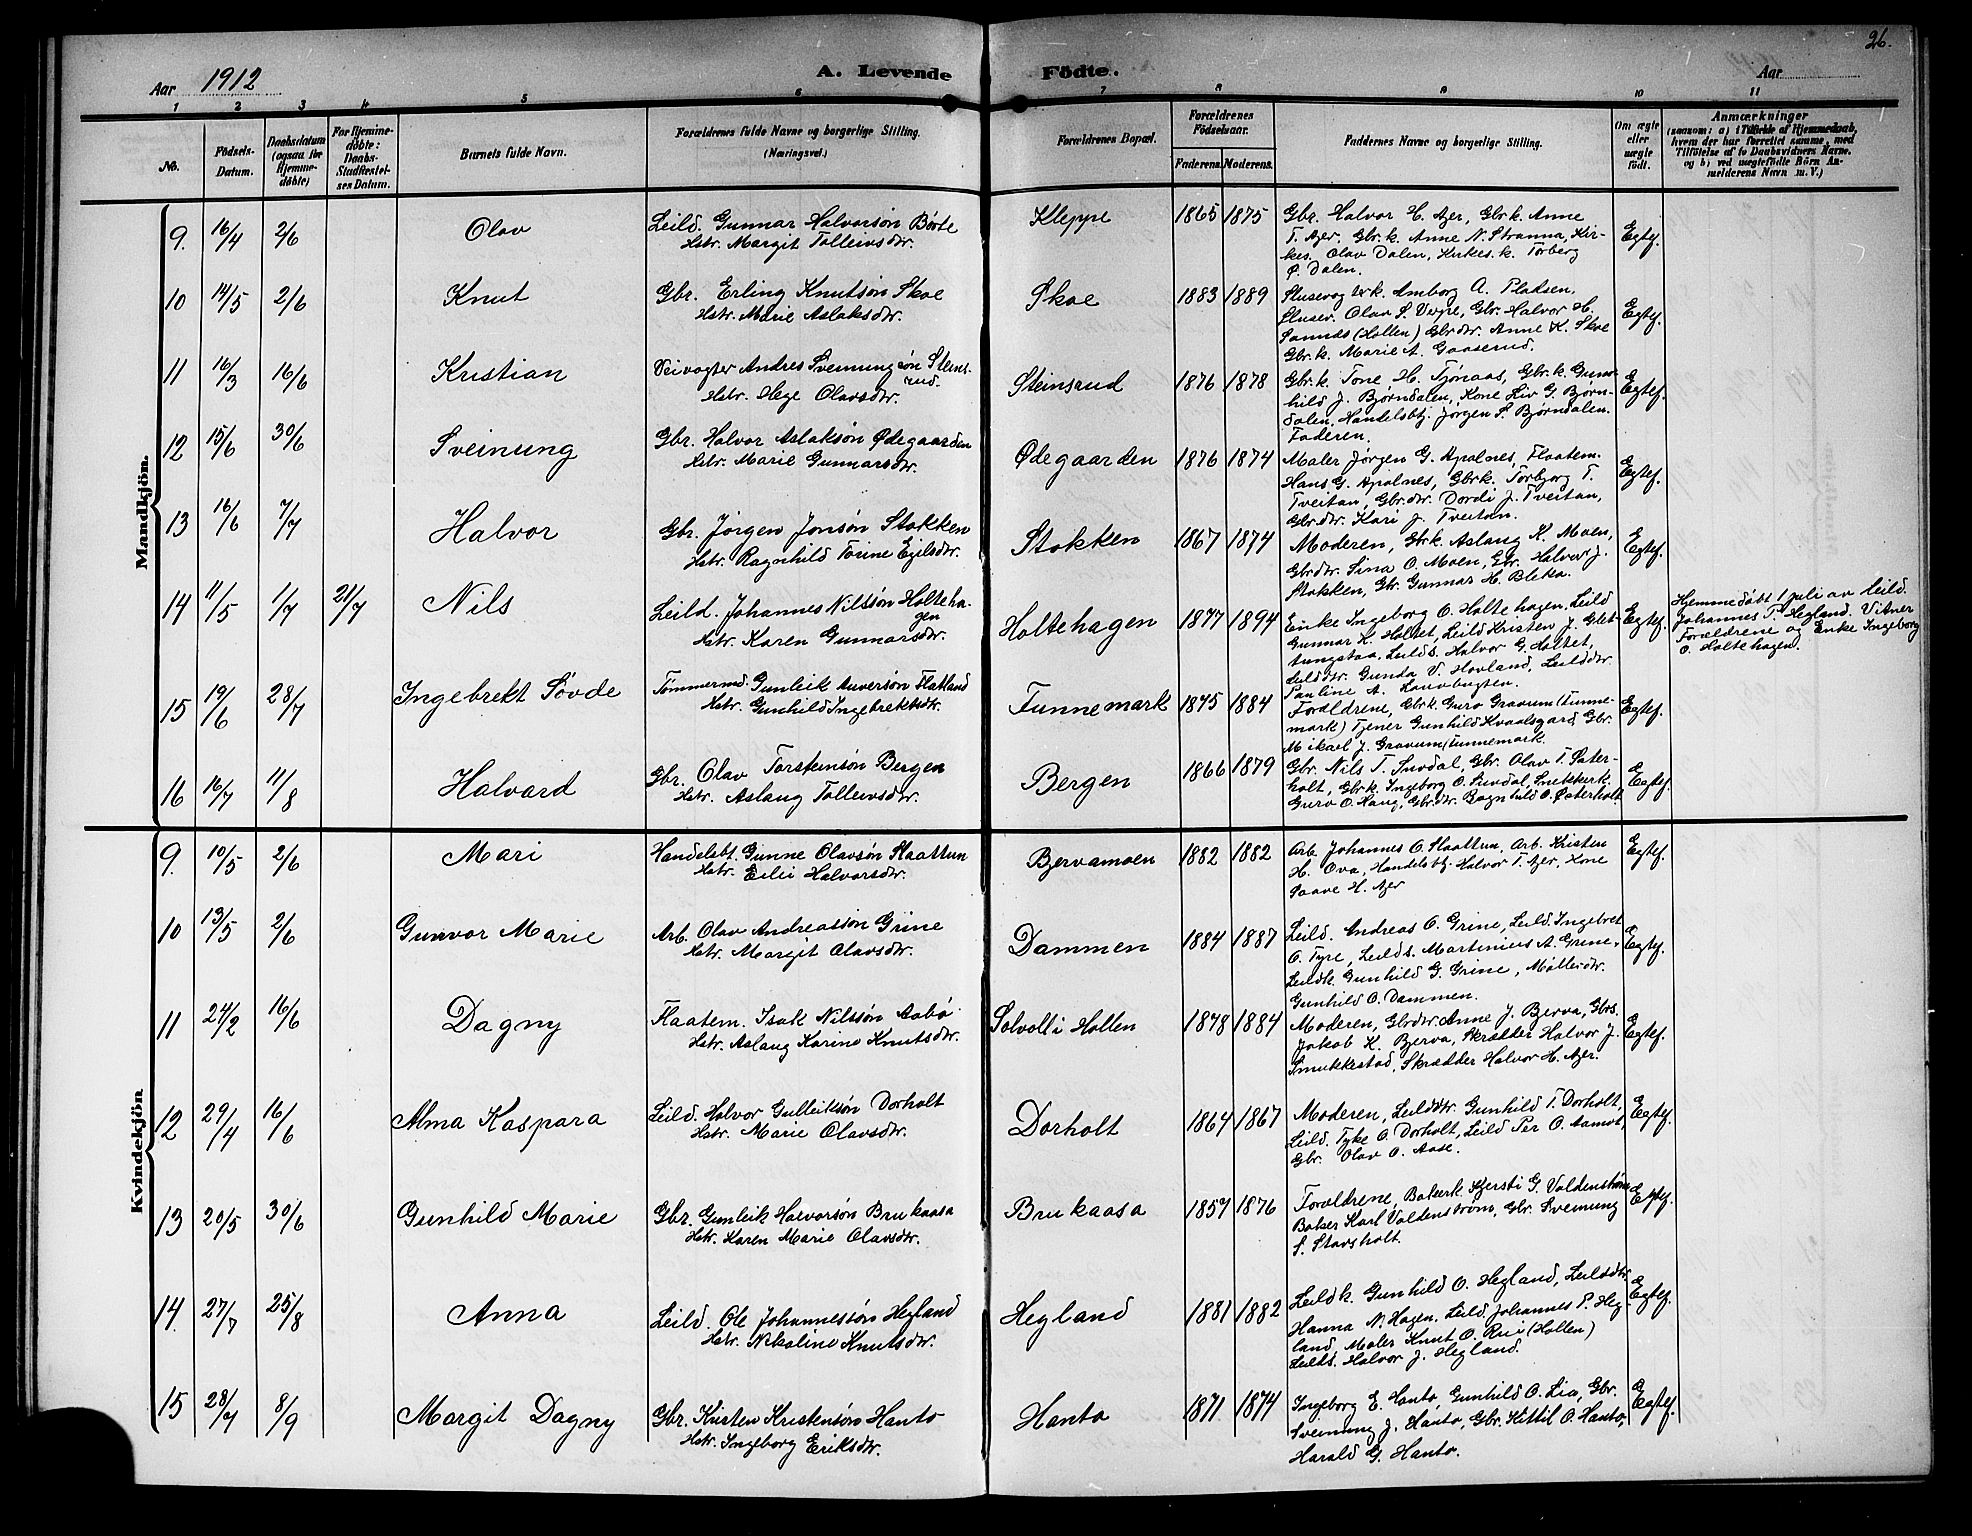 26.
Aar 1912
A. Levende Födte.
Aar
1 2 3 4 5 6 7 8 9 10 11
No.
Födsels-
Datum.
Daabsdatum
(ogsaa for
Hjemme-
döbte)
For Hjemme-
döbte:
Daabs-
Stadfæstel-
ses Datum.
Barnets fulde Navn.
Forældrenes fulde Navne og borgerlige Stilling.
(Næringsvei.)
Forældrenes Bopæl.
Forældrenes
Födselsaar.
Faderens. Moderens.
Faddernes Navne og borgerlige Stilling.
Om ægte
eller
uægte
födt.
Anmærkninger
(saasom: a) i Tilfælde af Hjemmedaab,
hvem der har forrettet samme, med
Tilföielse af to Daabsvidners Navne.
og b) ved uægtefödte Börn An-
melderens Navn m. V.)
Mandkjön.
9. 16/4 2/6 Olav
Leild. Gunnar Halvorsøn Børte
Hstr. Margit Tollevsdtr.
Kleppe 1865 1875
Gbr. Halvor H. Ajer, Gbrk. Anne
T. Ajer, Gbr. k. Anne N. Stranna, Kir-
kes. Olav Dalen, Kirkes. k. Torberg
Ø. Dalen.
Egtef.
10 14/5 2/6 Knut
Gbr. Erling Knutsøn Skoe
Hstr. Marie Aslaksdtr.
Skoe 1883 1889
Slusevog terk. Amborg A. Pladsen,
Slusev. Olav S. Verpe, Gbr. Halvor H.
(Hollen) Gbrdtr. Anne K. Skoe
Gbr. k. Marie A. Gaaserud.
Egtef.
11 16/3 16/6 Kristian
Veivogter Andres Sveinungsøn Stens-
rud.
Hstr. Hege Olavsdtr.
Steinsrud 1876 1878
Gbr. k. Tone H. Tjønaas, Gbr. k. Gun-
hild J. Bjørndalen, Kone Liv G. Bjørn-
dalen, Handelsbtj. Jørgen S. Bjørndalen.
Faderen.
Egtef.
12 15/6 30/6 Sveinung
Gbr. Halvor Aslaksøn Ødegaarden
Hstr. Marie Gunnarsdtr.
Ødegaarden 1876 1874
Maler Jørgen G. Apalnes, Flaatem.
Hans G. Apalnes, Gbrk. Torbjorg T.
Tveitan, Gbr. dtr. Dordi J. Tveitan,
Gbr. dtr. Kari J. Tveitan.
Egtef.
13 16/6 7/7 Halvor
Gbr. Jørgen Jonsøn Stokken
Hstr. Ragnhild Torine Egilsdtr.
Stokken 1867 1874
Moderen, Gbrk. Aslaug K. Moen,
Gbrdtr. Sina O. Moen, Gbr. Halvor J.
Stokken, Gbr. Gunnar H. Bleka.
Egtef.
14 11/5 1/7 21/7 Nils
Leild. Johannes Nilssøn Holteha-
gen
Hstr. Karen Gunnarsdtr.
Holtehagen 1877 1894
Enke Ingeborg O. Holtehagen, Leild
Gunnar K. Holtet, Leild Kristen J. Glet-
tungstaa, Leilds. Halvor G. Holtet,
Leilddtr. Gunda V. Hovland, Leilddtr.
Pauline A.
Egtef.
Hjemmedøbt 1 juli av leild.
Johannes P. Hegland. Vitner
Forældrene og Enke Ingeborg
O. Holtehagen.
15 19/6 28/7 Ingebrekt Søvde
Tømmermd. Gunleik Anversøn Flatland
Hstr. Gunhild Ingebrektsdtr.
Tunnemark 1875 1884
Forældrene, Gbrk. Guro Gravum (Tunne-
mark) Tjener Gunhild Kvaalsgard, Gbr.
Mikael J. Gravum (Tunnemark.
Egtef.
16 16/7 11/8 Halvard
Gbr. Olav Torsteinsøn Bergen
Hstr. Aslaug Tollevsdtr.
Bergen 1866 1879
Gbr. Nils T. Suvdal, Gbr. Olav T. Øster-
holt, Gbrk. Ingeborg O. Suvdal, Snekkerk.
Guro O. Haug, Gbr. dtr. Ragnhild O. Østerholt
Egtef.
Kvindekjön
9. 10/5 2/6 Mari
Handelsbt. Gunne Olavsøn Slaattun
Hstr. Eilii Halvorsdtr.
Bjervamoen 1882 1882
Arb. Johannes O. Slaattun, Arb. Kristen
H. Ova, Handelsbtj. Halvor T. Ajer, Kone
Paave H. Ajer
Egtef.
10 13/5 2/6 Gunvor Marie
Arb. Olav Andreassøn Grine
Hstr. Margit Olavsdtr.
Dammen 1884 1887
Leild. Andreas O. Grine, Leild. Ingebret
O. Tyre, Leilds. Martinius A. Grine,
Leildk. Gunhild G. Grine, Møllerdtr.
Gunhild O. Dammen.
Egtef.
11 24/2 16/6 Dagny
Flaatem. Isak Nilssøn Aabø
Hstr. Aslaug Karine Knutsdtr.
Solvoll i Hollen 1878 1884
Moderen, Gbrdtr. Anne J. Bjerva, Gbrs.
Jakob K. Bjerva, Skrædder Halvor J.
Smukkestad, Skrædder Halvor H. Ajer.
Egtef.
12 29/4 16/6 Alma Kaspara
Leild. Halvor Gulleiksøn Dorholt
Hstr. Marie Olavsdtr.
Dorholt 1864 1867
Moderen, Leilddtr. Gunhild T. Dorholt,
Leild. Tyke O. Dorholt, Leild Per O. Aamot,
Gbr. Olav O. Aase.
Egtef.
13 20/5 30/6 Gunhild Marie
Gbr. Gunleik Halvorsøn Brukaasa
Hstr. Karen Marie Olavsdtr.
Brukaasa 1857 1876
Forældrene, Bakerk. Kjersti G. Valdenstrøm
Baker Karl Valdenstrøm, Gbr. Sveinung
S. Stavsholt.
Egtef.
14. 27/7 25/8 Anna
Leild. Ole Johannessøn Hegland
Hstr. Nikoline Knutsdtr.
Hegland 1881 1882
Leildk. Gunhild O. Hegland, Leilddtr.
Hanna N. Hagen, Leild Johannes P. Heg-
land, Maler Knut O. Rui (Hollen)
Leilds. Halvor J. Hegland.
Egtef.
15 28/7 8/9 Margit Dagny
Gbr. Kristen Kristensøn Hanto
Hstr. Ingeborg Eriksdtr.
Hanto 1871 1874
Ingeborg E. Hanto, Gunhild O. Lia, Gbr.
Sveinung J. Hanto, Gbr. Kittil O. Hanto,
Harald G. Hanto.
Egtef.